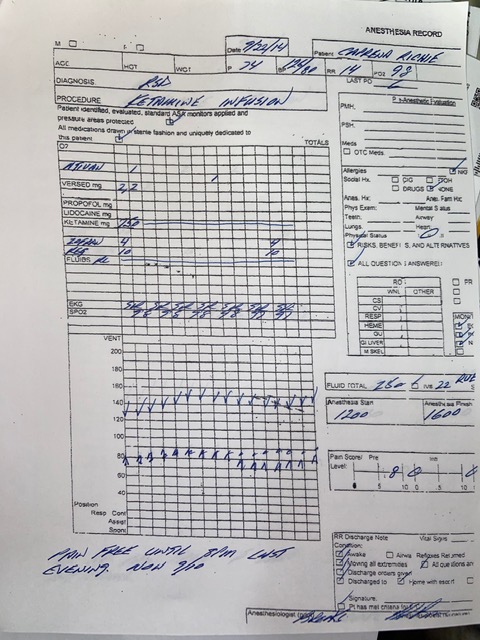 ANESTHESIA RECORD
M F Date 9/22/14 Patient
AGE HGT WGT P 74 BP 126/80 RR 14 PO2 98
LAST PO
DIAGNOSIS: RSD
PROCEDURE KETAMINE INFUSION
Patient identified, evaluated, standard ASA monitors applied and
pressure areas protected
All medications drawn in sterile fashion and uniquely dedicated to
this patient
TOTALS
O2
ATIVAN 1 1
VERSED mg 2,2
PROPOFOL mg
LIDOCAINE mg
KETAMINE mg 750
ZOFRAN 4 4
10 10
FLUIDS RL
EKG
SPO2
VENT
200
180
160
140
120
100
80
60
40
Position
Resp Cont
Assist
Spont
PAIN FREE UNTIL 8PM LAST
EVENING. NOW 9/10
Pre-Anesthetic Evaluation
PMH.
PSH.
Meds
OTC Meds.
Allergies
Social Hx. CIG ETOH
DRUGS NONE
Anes. Hx: Anes. Fam Hx:
Phys Exam: Mental Status
Teeth. Airway
Lungs. Heart
Physical Status
RISKS, BENEFITS, AND ALTERNATIVES
ALL QUESTIONS ANSWERED
ROS
WNL OTHER
CS
CV
RESP
HEME
GU
GI LIVER
M SKEL
FLUID TOTAL 250 IV# 22
Anesthesia Start Anesthesia Finish
1200 1600
Pain Score/ Pre
Level: 8 0
0 5 10 0 .5 10
RR Discharge Note Vital Signs
Condition:
Awake Airway Reflexes Returned
Moving all extremities All questions an
Discharge orders given
Discharged to Home with escort
Signature:
Pt has met criteria for
Anesthesiologist